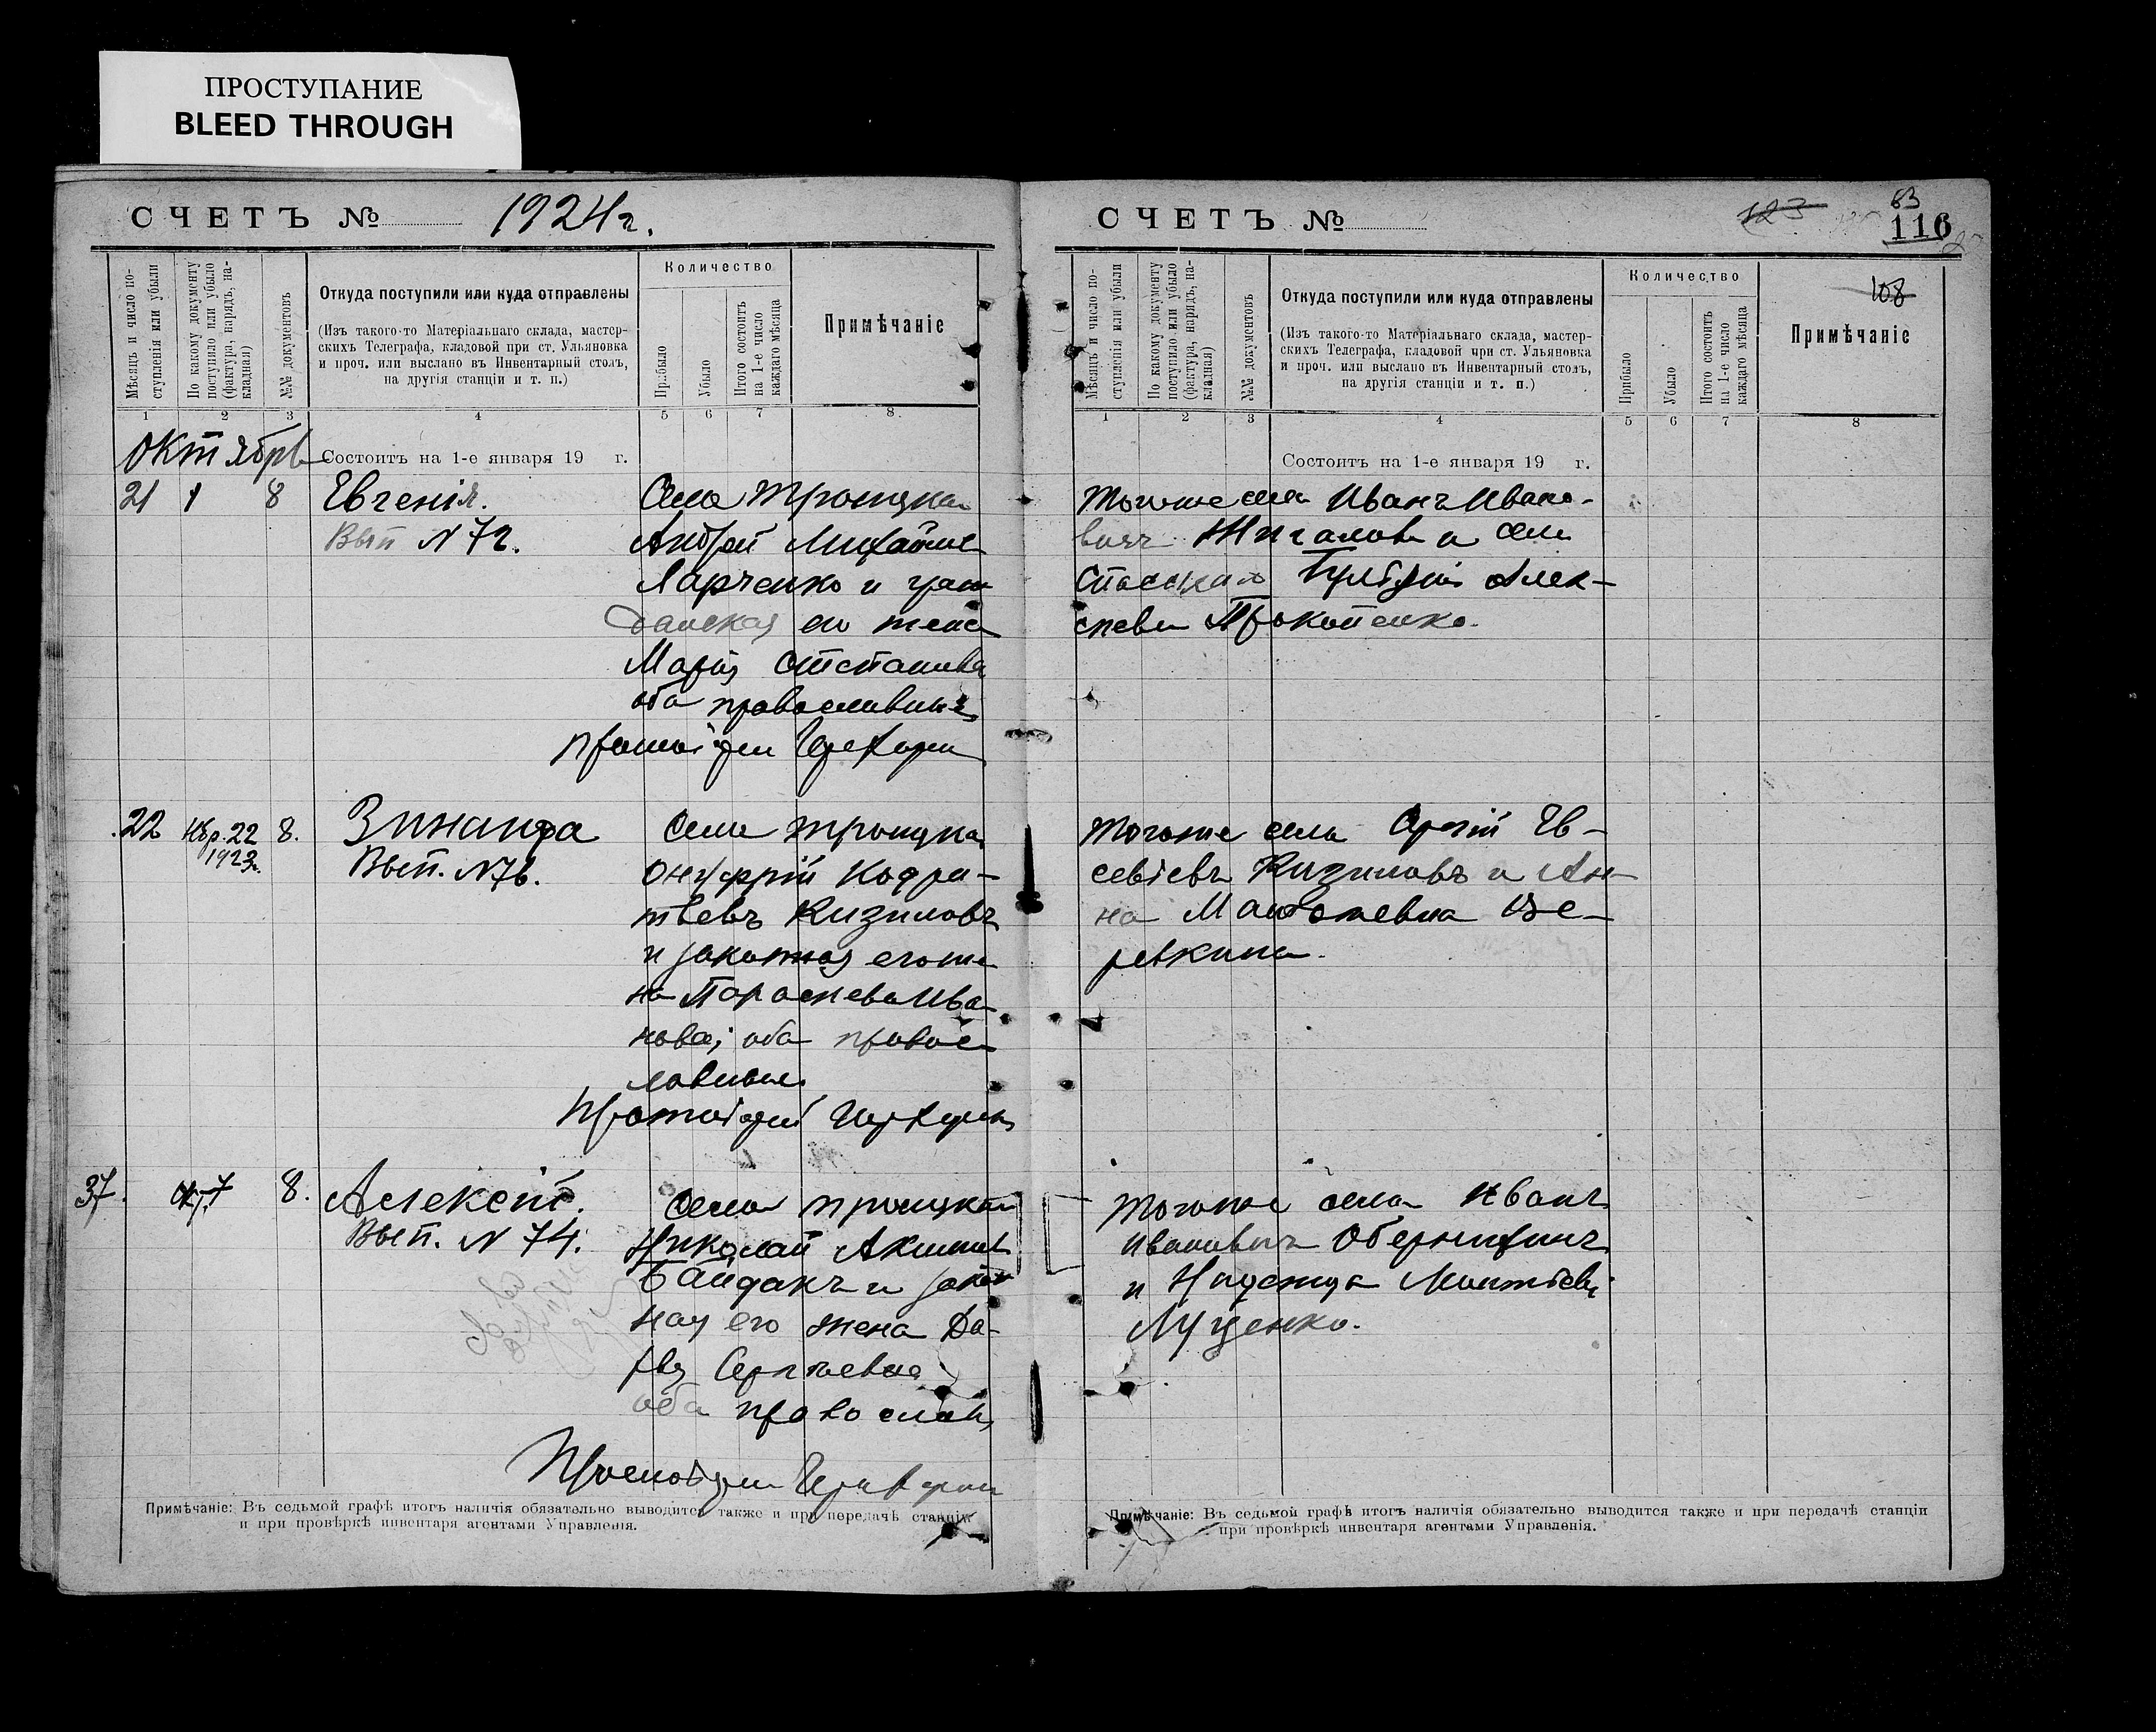 ПРОСТУПАНИЕ
BLEED THROUGH
СЧЕТЪ №
1924 г.
Мѣсяцъ и число поступленія или убыли
По какому документу поступило или убыло (фактура, нарядъ, накладная)
№№ документовъ
Откуда поступили или куда отправлены
(Изъ такого-то Матеріальнаго склада, мастер-
скихъ Телеграфа, кладовой при ст. Ульяновка
и проч. или выслано въ Инвентарный столъ,
на другія станціи и т. п.)
Количество
Прибыло
Убыло
Итого состоитъ на 1-е число каждаго мѣсяца
Примѣчаніе
1 2 3 4 5 6 7 8
Октябрь
Состоитъ на 1-е января 19 г.
21 1 8 Евгенія.
Вып N 72.
Села Троицка
Андрей
Харченко и граж
данская его жена
Марія Степанова
оба православные
22 Нбр. 22 8. Зинаида
1923 г.
Вып. N 76.
Села Троицка
Онуфрій Кодра-
тьевъ Кизиловъ
и законная его же
на Параскева Ива
нова; оба правос
лавные.
37. 7 8. Алексій.
Вып. N 74.
Села Троицкаго
Николай
Байдакъ и закон
ная его жена Да-
рья Сергѣевна
оба православн
Примѣчаніе: Въ седьмой графѣ итогъ наличія обязательно выводится также и при передачѣ станціи
и при провѣркѣ инвентаря агентами Управленія.
СЧЕТЪ №
123
83
116
108
Мѣсяцъ и число поступленія или убыли
По какому документу поступило или убыло (фактура, нарядъ, накладная)
№№ документовъ
Откуда поступили или куда отправлены
(Изъ такого-то Матеріальнаго склада, мастер-
скихъ Телеграфа, кладовой при ст. Ульяновка
и проч. или выслано въ Инвентарный столъ,
на другія станціи и т. п.)
Количество
Прибыло
Убыло
Итого состоитъ на 1-е число каждаго мѣсяца
Примѣчаніе
1 2 3 4 5 6 7 8
Состоитъ на 1-е января 19 г.
Тогоже села Иванъ Ивано-
вичъ Жигаловъ и села
Спасскаго Алек-
сеева Прокопенко.
Тогоже села Сергій Ев-
севіевъ Кизиловъ и Ан-
на Ве-
ревкина.
Тогоже села Иванъ
Ивановичъ Обернихинъ
и Надежда
Луценко.
Примѣчаніе: Въ седьмой графѣ итогъ наличія обязательно выводится также и при передачѣ станціи
при провѣркѣ инвентаря агентами Управленія.